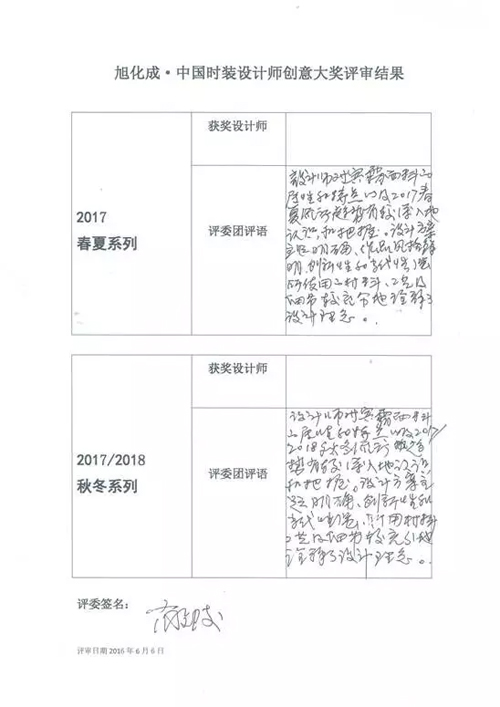 旭化成·中国时装设计师创意大奖评审结果
获奖设计师
2017
春夏系列
评委团评语
设计师对宾霸面料的
属性和特点以及2017春
夏流行趋势有较深入地
认识和把握。设计方案
主题明确,作品风格鲜
明,创新性和时代性强,
所使用的材料、工艺及
细节较充分地诠释了
设计理念。
获奖设计师
2017/2018
秋冬系列
评委团评语
设计师对宾霸面料
的属性和特点以及2017/
2018秋冬流行趋
势有较深入地认识
和把握。设计方案主
题明确,创新性和
时代性强,所用材料
工艺及细节较充分地
诠释了设计理念。
评委签名:
评审日期 2016 年 6 月 6 日